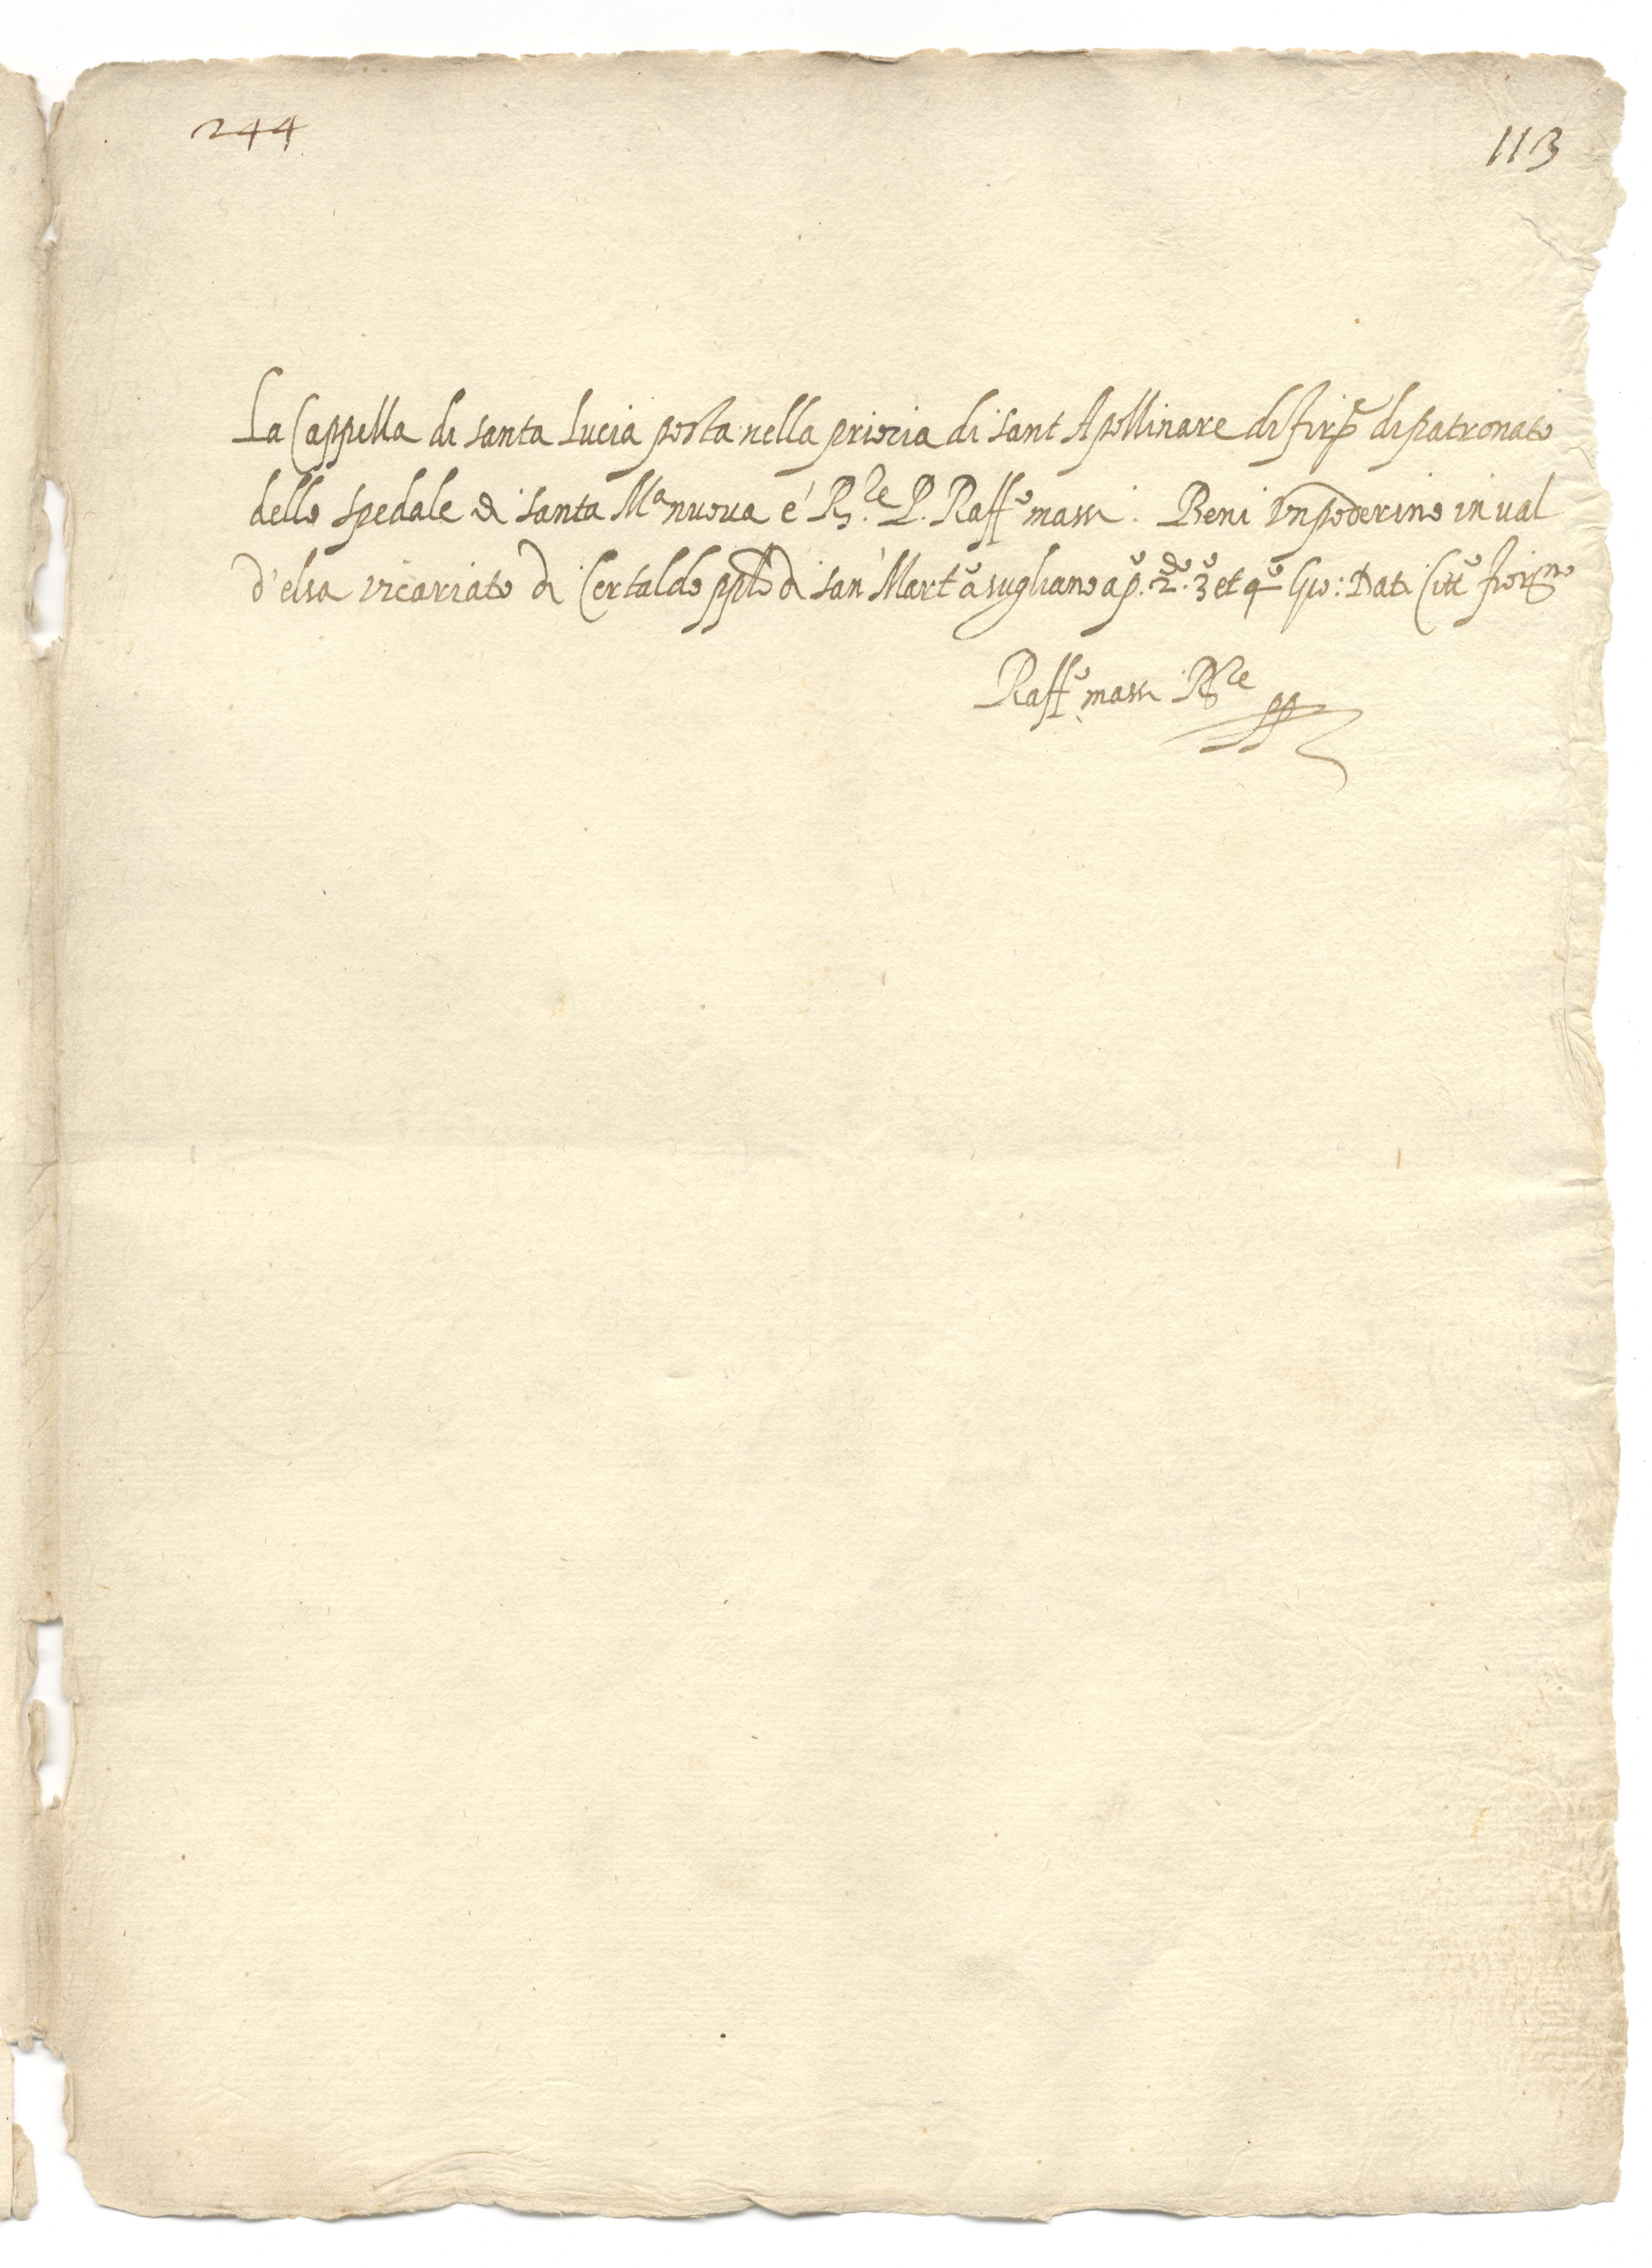 244
113
La Cappella di santa Lucia posta nella prioria di sant Apollinare di firẽ di patronato
dello spedale di santa Mª nuova é R.re P. Raffº massi. Beni Un poderino in val
d'elsa vicariato di Certaldo pplo di san Martº a sugliano a pº. 2do. 3º et 4º Gio: Dati Citt° fiorno
Raffº massi R.re